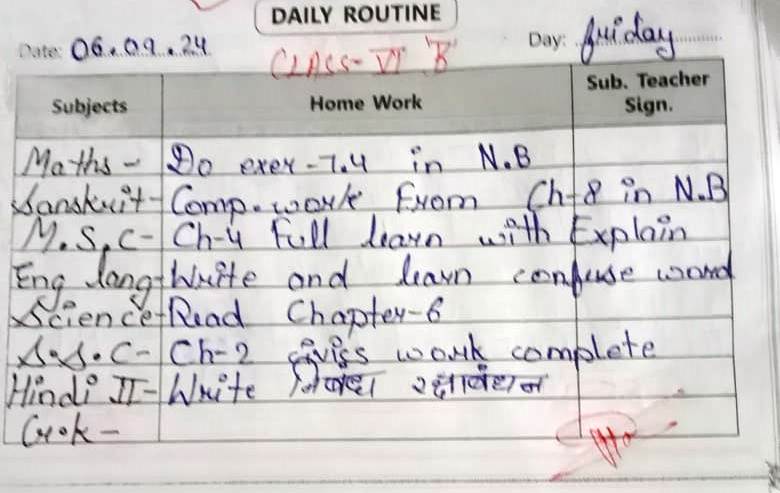 DAILY ROUTINE
Date: 06.09.24 Day: friday
CLASS-VI 'B'
Subjects Home Work Sub. Teacher Sign.
Maths - Do exer-7.4 in N.B
Sanskrit - Comp. work From Ch-8 in N.B
M.S.C - Ch-4 full learn with Explain
Eng lang - Write and learn confuse word
Science - Read Chapter-6
S.S.C - Ch-2 civiss work complete
Hindi II - Write निबंध रक्षाबंधन
G.k -